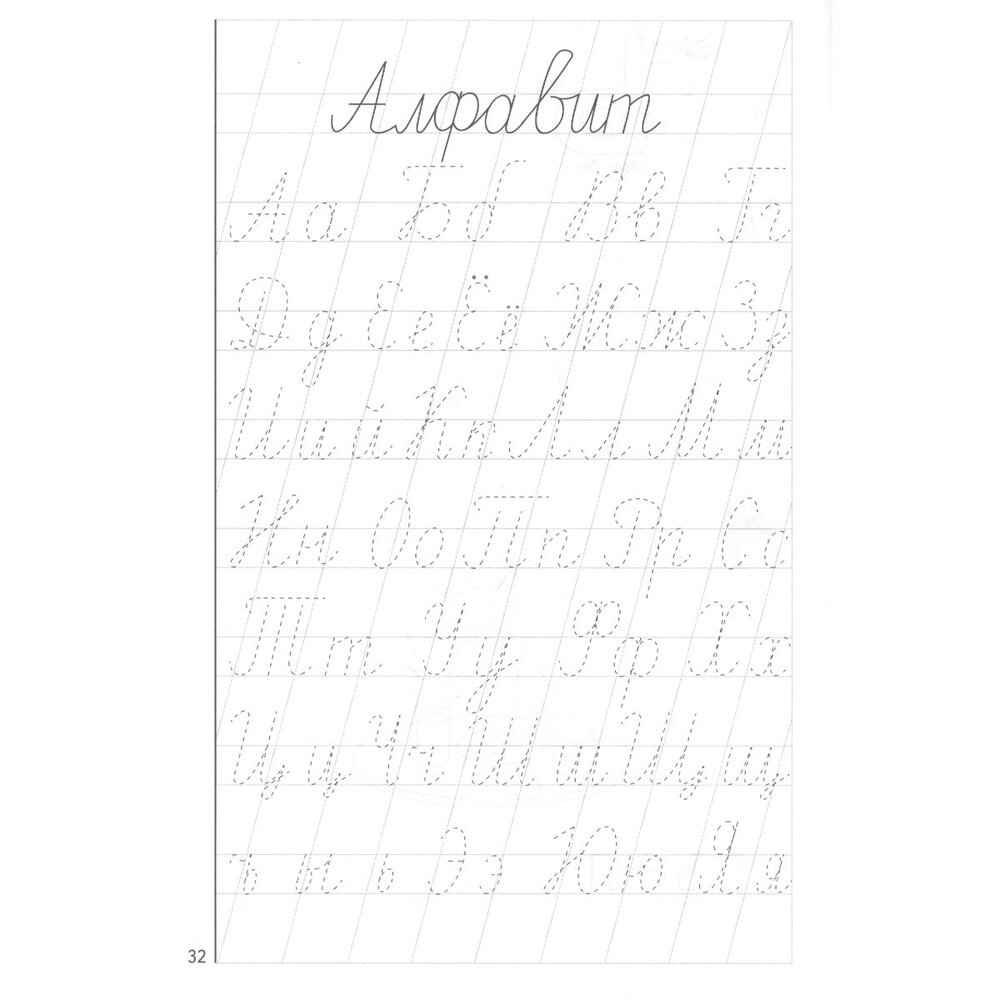 Алфавит
Аа Бб Вв Гг
Дд Ее Ёё Жж Зз
Ии й Кк Лл Мм
Нн Оо Пп Рр Сс
Тт Уу Фф Хх
Цц Чч Шш Щщ
ъ ы ь Ээ Юю Яя
32